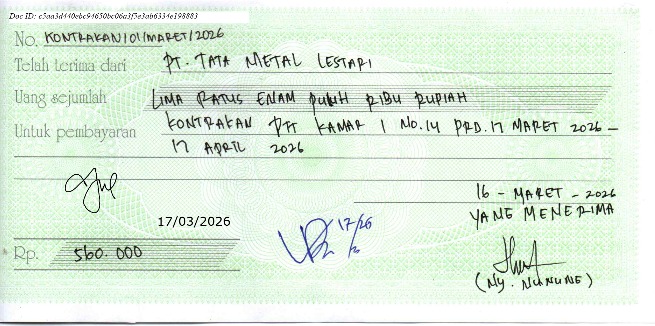 Doc ID: c5aa3d440ebc94650bc06a3f5e3ab6334e198883
No. KONTRAKAN/01/MARET/2026
Telah terima dari PT. TATA METAL LESTARI
Uang sejumlah LIMA RATUS ENAM PULUH RIBU RUPIAH
Untuk pembayaran KONTRAKAN PTT KAMAR 1 NO.14 PRD.17 MARET 2026 –
17 APRIL 2026
16 - MARET - 2026
YANG MENERIMA
17/03/2026
17/26
Rp. 560.000
(NY. NUNUNG)